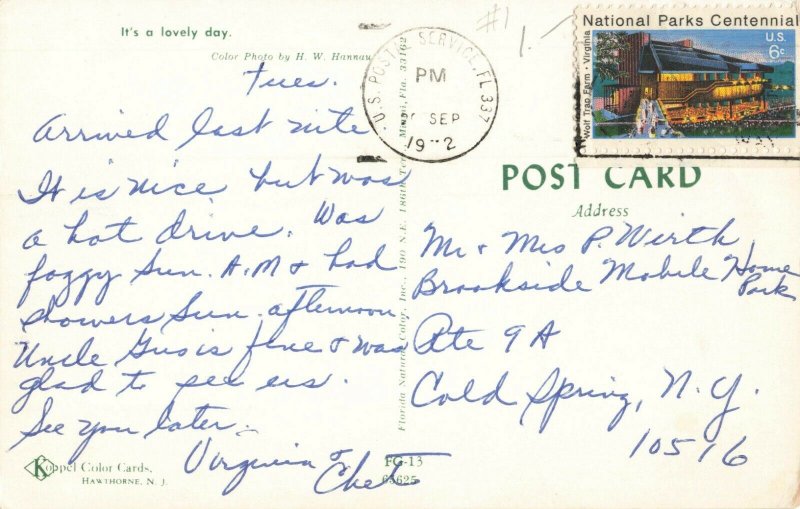 It's a lovely day.
Color Photo by H. W. Hannau
Tues.
Arrived last nite
It is nice but was
a hot drive. Was
foggy Sun. A.M & had
showers Sun. afternoon
Uncle Gus is fine & was
glad to see us.
See you later.
Virginia &
Chet
Koppel Color Cards,
HAWTHORNE, N. J.
FG-13
65625
Florida Natural Color, Inc., 190 N.E. 186th Terr. Miami, Fla. 33162
#1
1.-
U.S. POSTAL SERVICE, FL 337
PM
SEP
1972
National Parks Centennial
U.S.
6c
Wolf Trap Farm • Virginia
POST CARD
Address
Mr & Mrs P. Wirth
Brookside Mobile Home
Park
Rte 9A
Cold Spring, N.Y.
10516